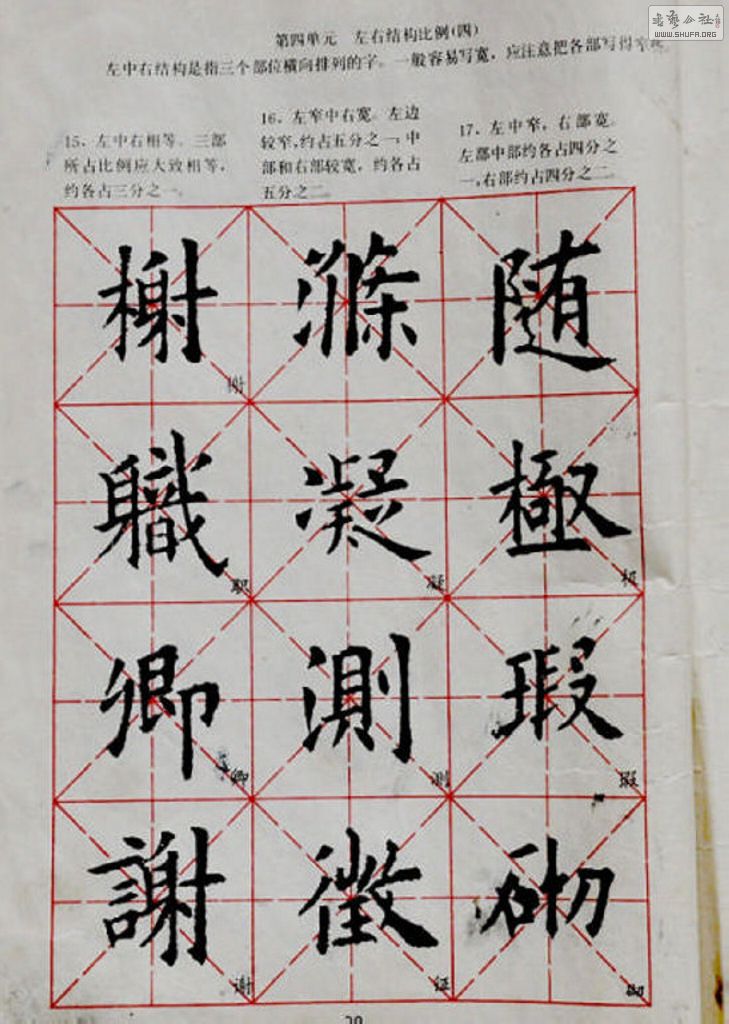 书艺公社
WWW.SHUFA.ORG
第四单元 左右结构比例(四)
左中右结构是指三个部位横向排列的字。一般容易写宽，应注意把各部写得窄
15．左中右相等。三部
所占比例应大致相等，
约各占三分之一。
16．左窄中右宽。左边
较窄，约占五分之一，中
部和右部较宽，约各占
五分之二。
17．左中窄，右部宽。
左部中部约各占四分之
一，右部约占四分之二。
榭 滌 随
榭
職 凝 極
职 凝 极
卿 測 瑕
卿 测 瑕
謝 徵 砌
谢 征 砌